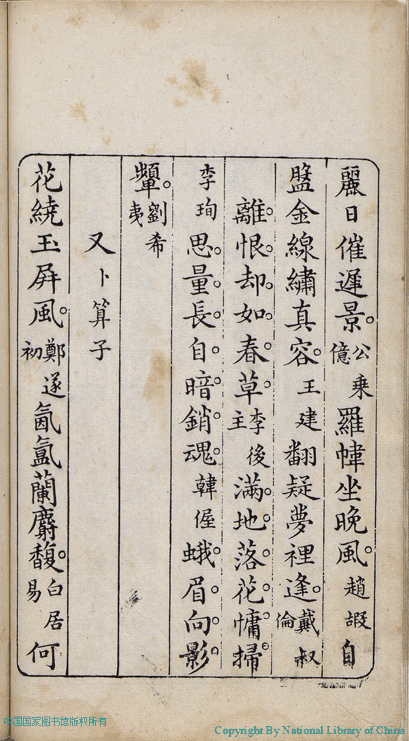 麗日催遲景。公乘億羅幃坐晚風。趙嘏自
盤金線繡真容。王建翻疑夢裡逢。戴叔倫
離恨却如春草。李後主滿地落花。慵掃。
李珣思量長自暗銷魂。韓偓蛾眉向影
顰。劉希夷
又卜算子
花繞玉屏風。鄭遂初氤氳蘭麝馥。白居易何
中国国家图书馆版权所有
Copyright By National Library of China